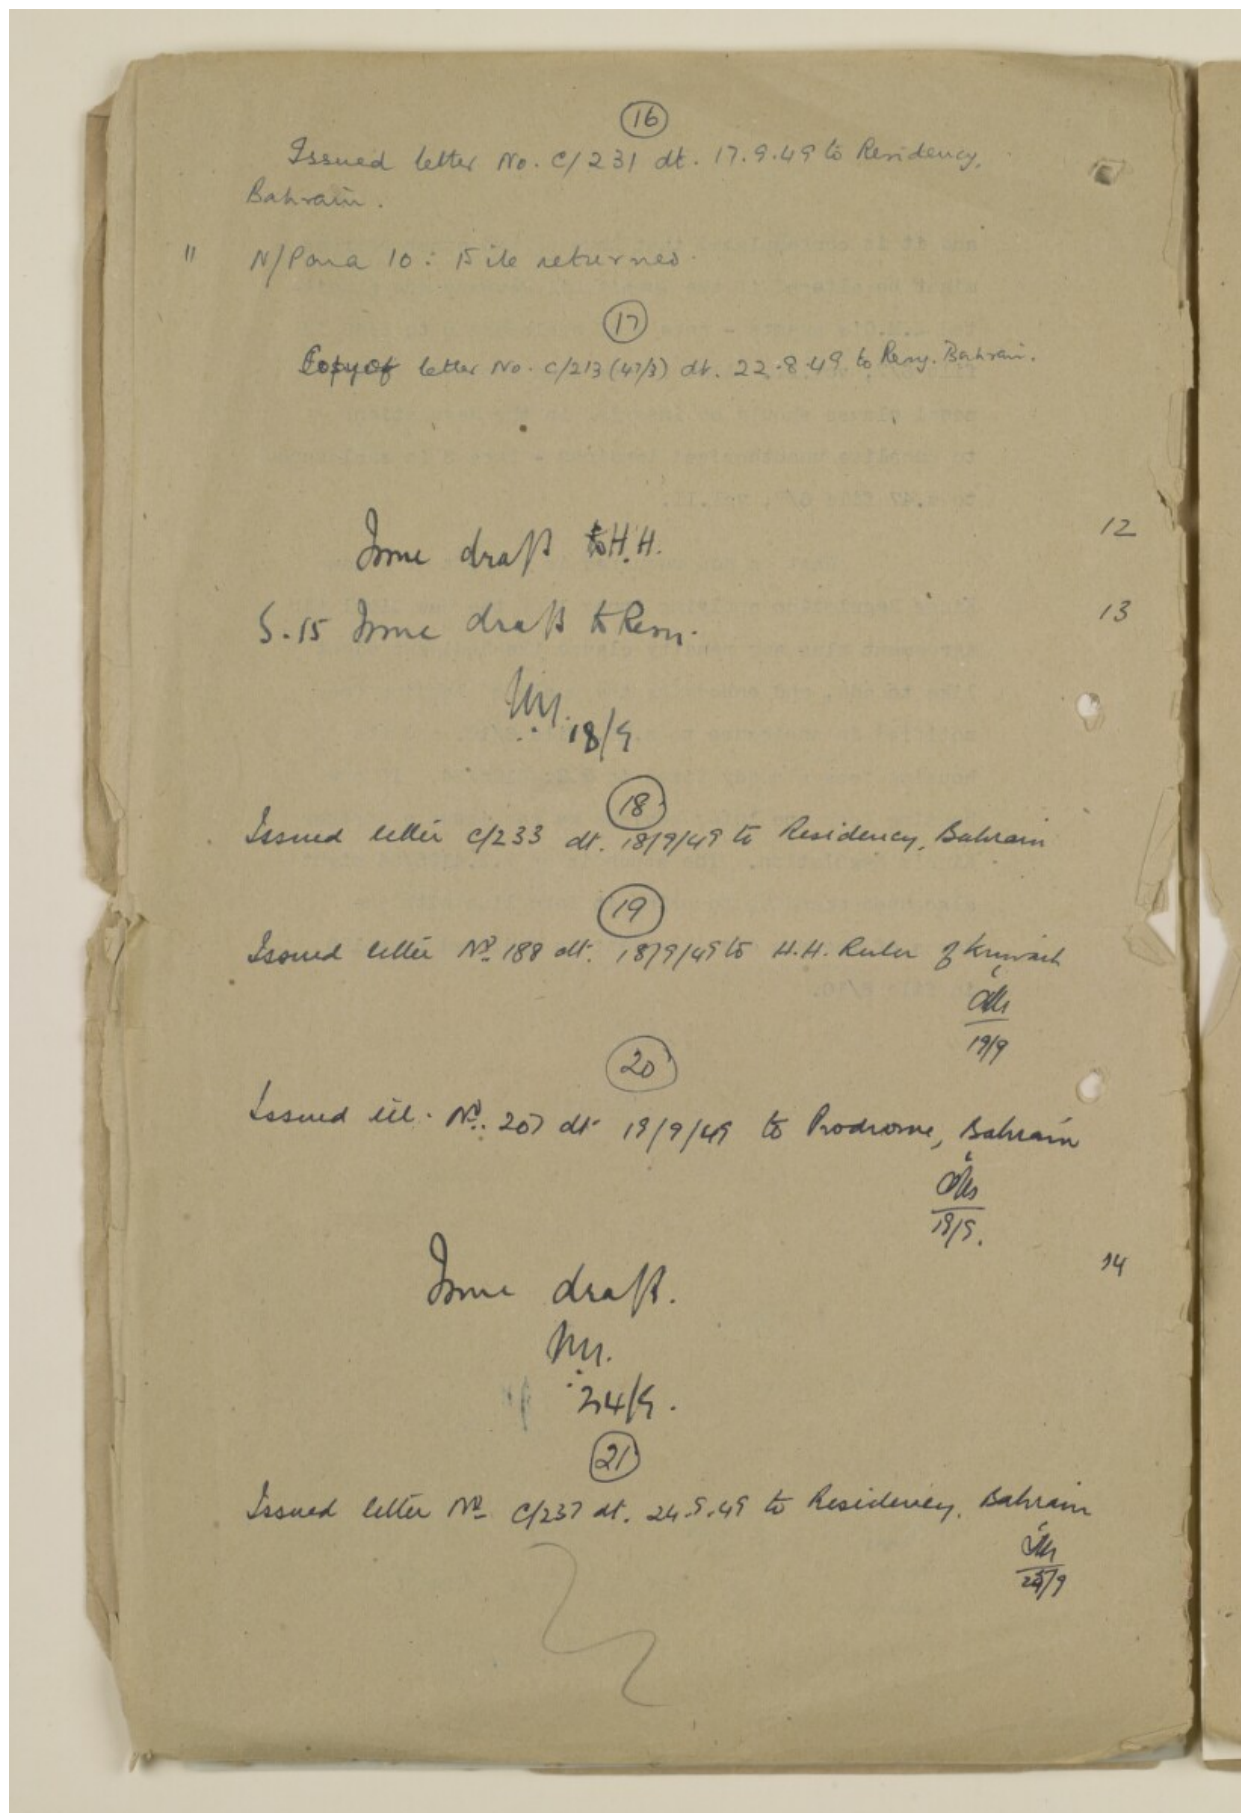 16
Issued letter No. C/231 dt. 17.9.49 to Residency,
Bahrain.
11 N/Para 10: File returned.
17
Copy of letter No. C/213 (47/3) dt. 22.8.49 to Resy. Bahrain.
Issue draft to H.H. 12
S.15 Issue draft to Resy. 13
18/9
18
Issued letter C/233 dt. 18/9/49 to Residency, Bahrain
19
Issued letter No. 188 dt. 18/9/49 to H.H. Ruler of Kuwait
19/9
20
Issued tel. No. 207 dt 19/9/49 to Prodrome, Bahrain
19/9.
Issue draft. 14
24/9.
21
Issued letter No. C/237 dt. 24.9.49 to Residency, Bahrain